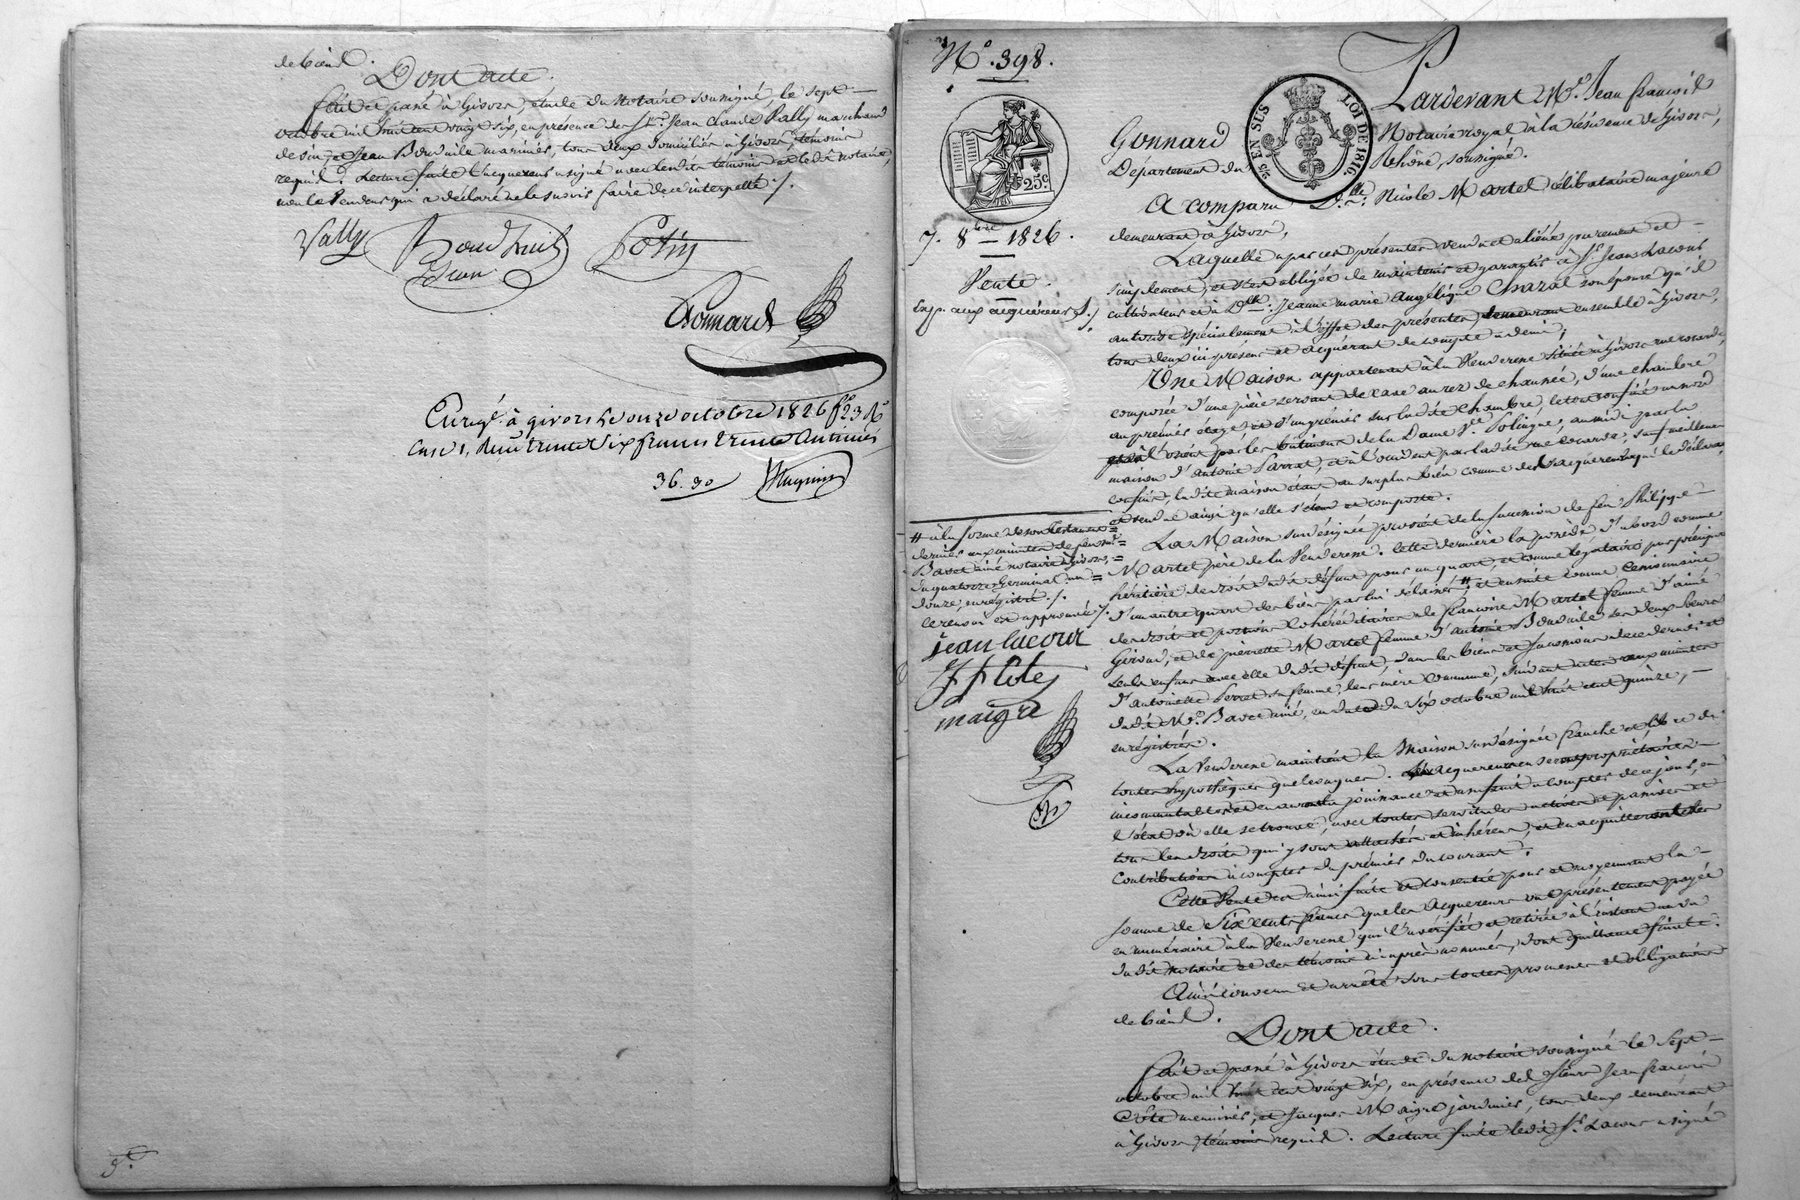 de bien.
Dont acte.
fait et passé à Givors, étude du Notaire soussigné, le sept
octobre mil huit cent vingt six, en présence de Sr. Jean Claude Vally marchand
de vin, et Jean Bonduile marinier, tous deux domiciliés à Givors, témoins
requis. Lecture faite l'acquereur a signé avec lesdits témoins et ledit notaire,
non le Vendeur qui a déclaré ne le savoir faire de ce interpellé ./.
Vally
Cotin
Jean
Gonnard
Enregé. à givors le onze octobre 1826 fo. 23 Ro.
Case 1, Reçu trente six francs trente Centimes
36.30
N.o 398.
25 EN SUS
LOI DE 1816
25c.
7. 8bre 1826.
Vente.
Exp. aux acquéreurs ./.
Pardevant Me. Jean françois
Gonnard Notaire royal à la résidence de Givors,
Département du Rhône, soussigné.
A comparu Dlle. Nicole Martel célibataire majeure
demeurant à Givors,
Laquelle a par ces présentes vendu et aliéné purement et
simplement, et s'est obligée de maintenir et garantir à Sr. Jean Lacour
cultivateur et à Dme. Jeanne marie Angélique Chazal son épouse qu'il
autorise spécialement à l'effet des présentes, demeurant ensemble à Givors,
tous deux ici présens et acquérant de compte à demi,
Une Maison appartenant à la Venderesse située à Givors rue
composée d'une pièce servant de cave au rez de chaussée, d'une chambre
au premier étage et d'un grenier sur ladite chambre, le tout confiné au nord
à l'orient par les batimens de la Dame Ve. Poligne, au midi par la
maison d'antoine Parrat, et à l'occident par ladite rue sauf meilleurs
confins, ladite maison étant au surplus bien connue des acquereurs
et vendue ainsi qu'elle s'étend et comporte.
La Maison susdésignée provient de la succession de feu Philippe
Martel père de la Venderesse. Cette dernière la possède d'abord comme
héritière de droit dudit défunt pour un quart, et comme légataire par préciput
d'un autre quart des biens par lui délaissés #, et ensuite comme Cessionnaire
des droits et portions Cohéréditaires de françoise Martel femme d'aimé
Giroud, et de pierrette Martel femme d'antoine Bonduile ses deux soeurs
seuls enfans avec elle dudit défunt, dans les biens et successions de ce dernier et
d'antoinette Perret sa femme, leur mère commune, suivant actes aux minutes
dudit Me. Basset aîné, en date du six octobre mil huit cent quinze,
enrégistrés.
# à la forme de son testament
dernier aux minutes de feu Me.
Basset aîné notaire à Givors,
du quatorze Germinal an
douze, enrégistré ./.
le renvoi est approuvé ./.
jean lacour
maigre
La Venderesse maintient la Maison susdésignée franche et libre de
toutes hypothèques quelconques. Les acquereurs en seront propriétaires
incommutables et en auront la jouissance à compter de ce jour, en
l'état où elle se trouve, avec toutes servitudes actives et passives et
tous les droits qui y sont attachés et inhérens, et en acquitteront les
contributions à compter du premier du courant.
Cette Vente est ainsi faite et consentie pour et moyennant la
somme de Six cents francs que les Acquereurs ont présentement payée
en numéraire à la Venderesse qui l'a vérifiée et retirée à l'instant au vu
dudit notaire et des témoins ci après nommés, dont quittance finale.
Ainsi convenu et arrêté sous toutes promesses et obligations
de bien.
Dont acte.
fait et passé à Givors étude du notaire soussigné le Sept
octobre mil huit cent vingt six, en présence des Sieurs Jean françois
Côte menuisier, et Jacques Maigre jardinier, tous deux demeurant
à Givors, témoins requis. Lecture faite ledit Sr. Lacour a signé